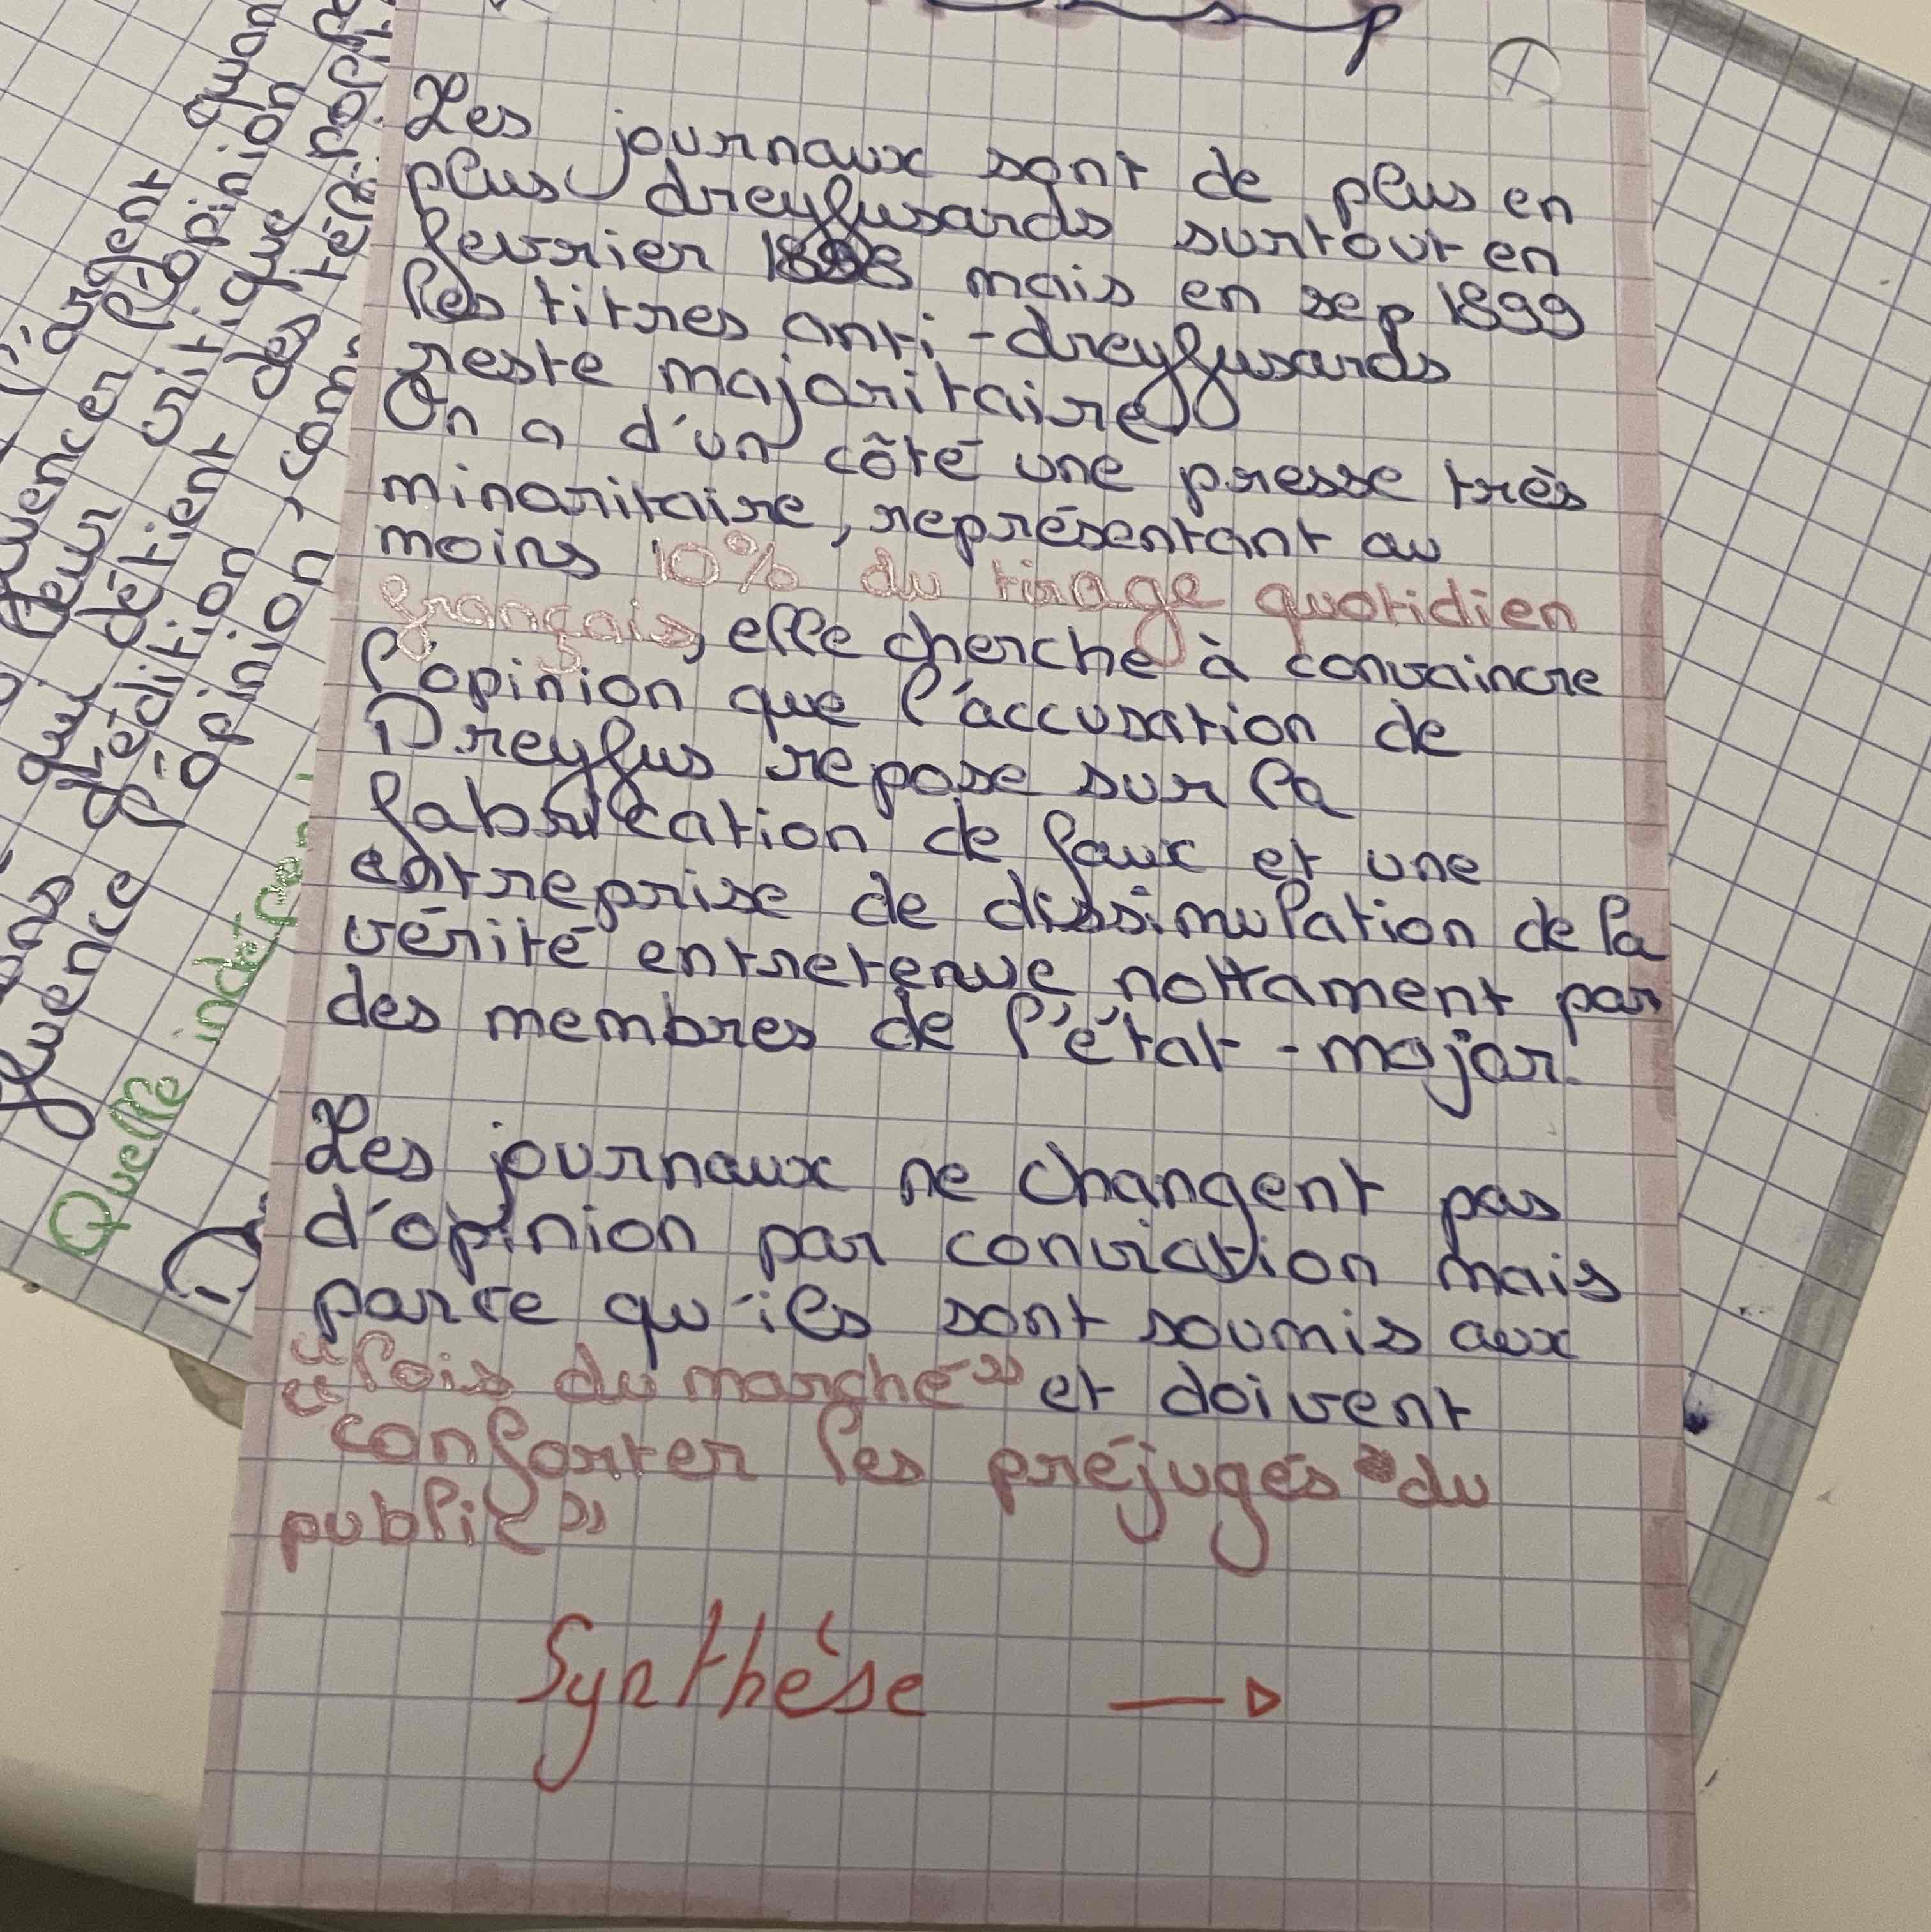 Les journaux sont de plus en
plus dreyfusards surtout en
fevrier 1898 mais en sep 1899
les titres anti-dreyfusards
reste majoritaire
On a d'un côté une presse très
minoritaire, représentant au
moins 10% du tirage quotidien
français, elle cherche à convaincre
l'opinion que l'accusation de
Dreyfus repose sur la
fabrication de faux et une
entreprise de dissimulation de la
vérité entretenue nottament par
des membres de l'état-major.
Les journaux ne changent pas
d'opinion par conviction mais
parce qu'ils sont soumis aux
"lois du marché" et doivent
"conforter les préjugés du
public"
Synthèse →
l'argent quan
l'opinion
critique
qui détient des
l'édition
l'opinion
Quelle indépen